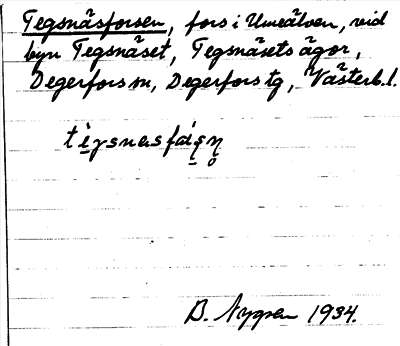 Tegsnäsforsen, fors i Umeälven, vid
byn Tegsnäset, Tegsnäsets ägor,
Degerfors sn, Degerfors tg, Västerb. l.
B. Nygren 1934.